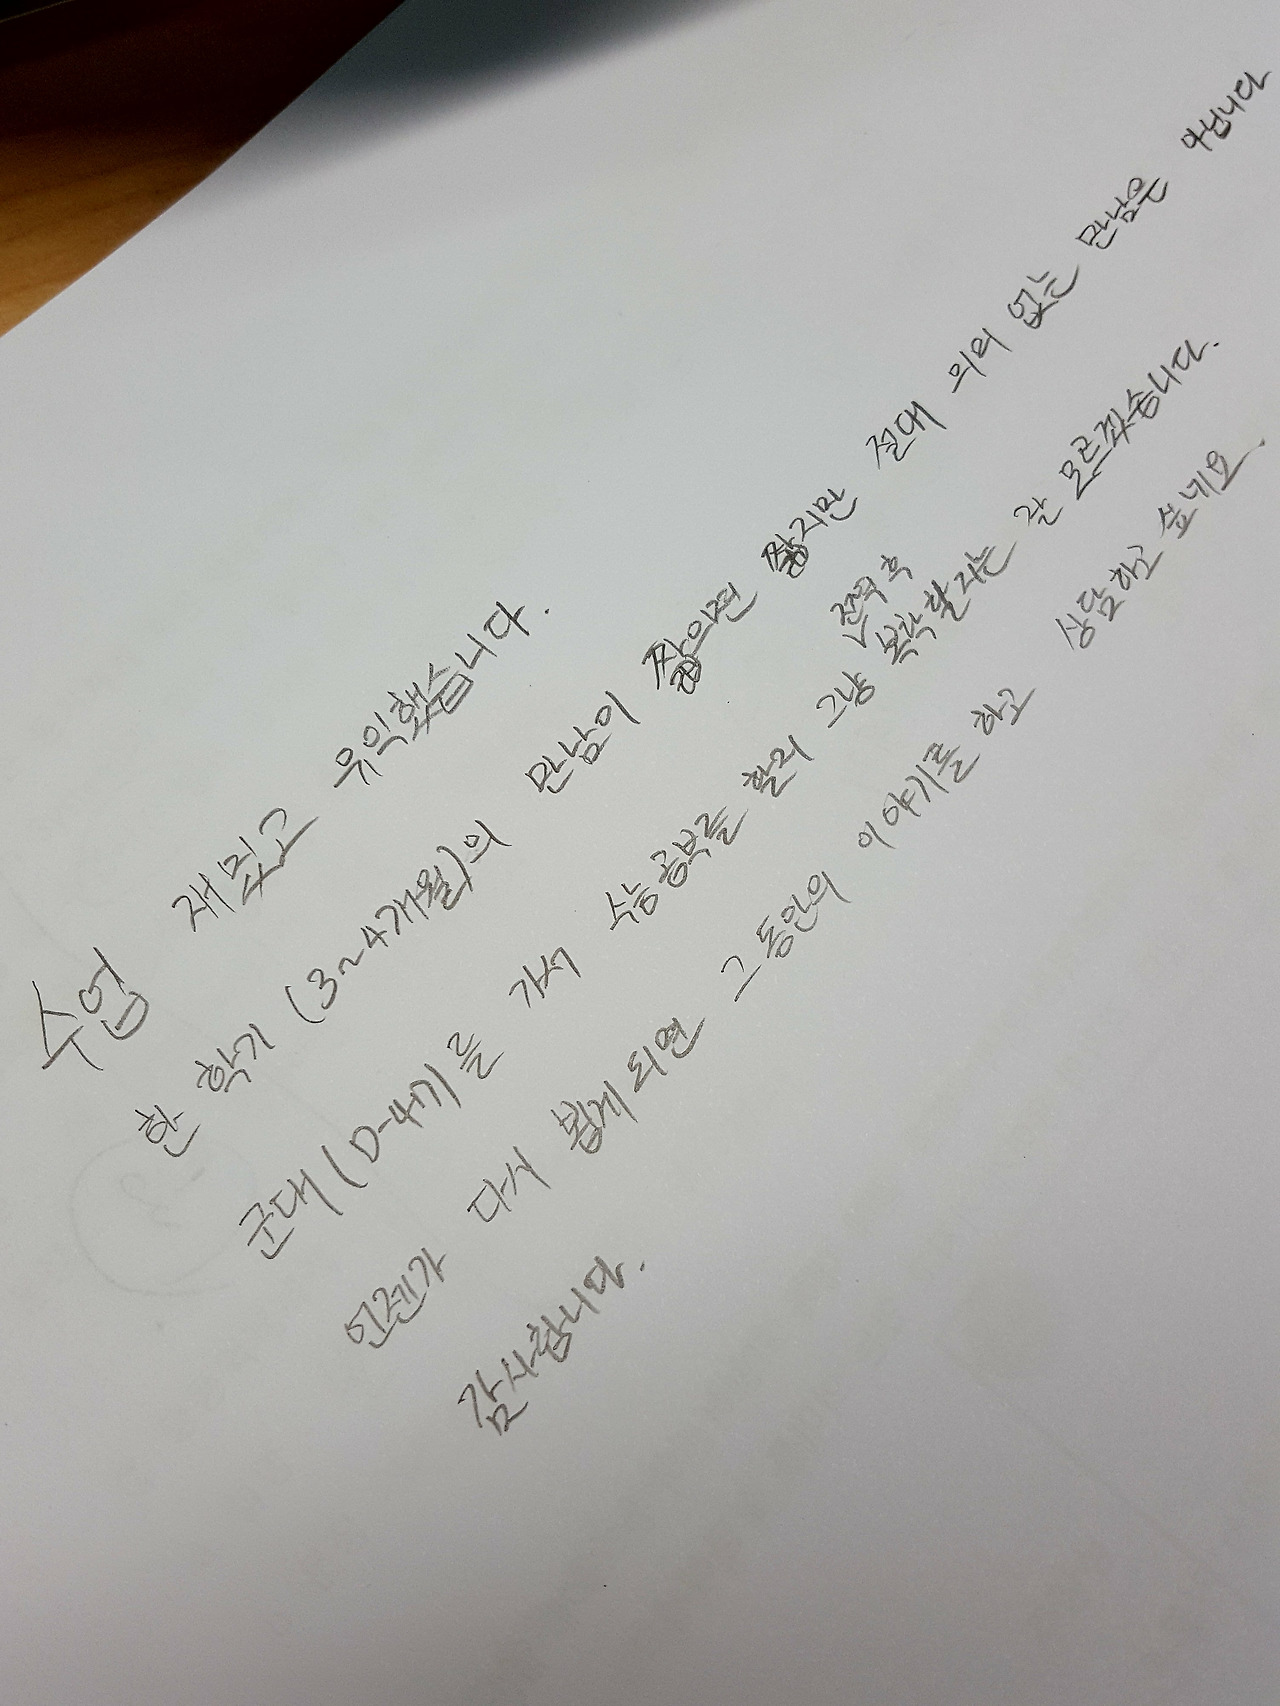 수업 재밌고 유익했습니다.
한 학기 (3~4개월)의 만남이 짧으면 짧지만 절대 의미 없는 만남은 아닙니다
전역 후
군대(D-47)를 가서 수능공부를 할지 그냥 복학할지는 잘 모르겠습니다.
언젠가 다시 뵙게되면 그 동안의 이야기를 하고 상담하고 싶네요.
감사합니다.